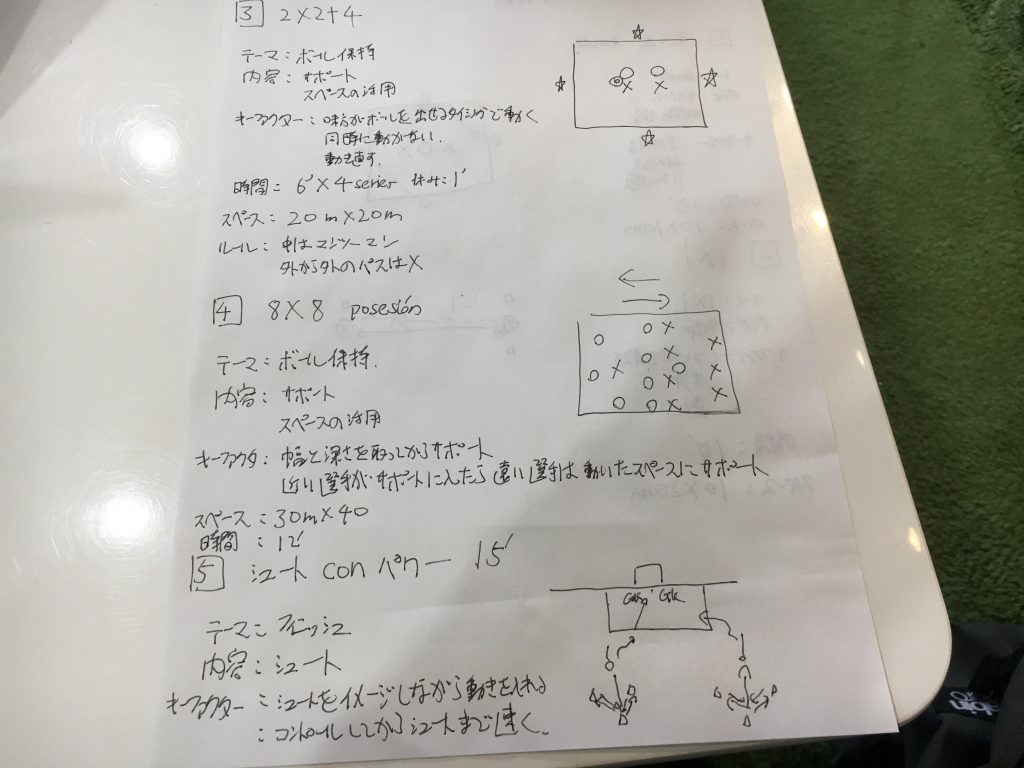 3 2×2+4
テーマ：ボール保持
内容：サポート
スペースの活用
キーファクター：味方がボールを出せるタイミングで動く
同時に動かない.
動き直す.
時間：6'×4 series 休み：1'
スペース：20m×20m
ルール：中はマンツーマン
外から外のパスは×
4 8×8 posesión
テーマ：ボール保持.
内容：サポート
スペースの活用
キーファクタ：幅と深さを取ってからサポート
近い選手がサポートに入たら遠い選手は動いたスペースにサポート
スペース：30m×40
時間：12'
5 シュート con パワー 15'
テーマ：フィニッシュ
内容：シュート
キーファクター：シュートをイメージしながら動きを入れる
：コントロールしてからシュートまで速く.